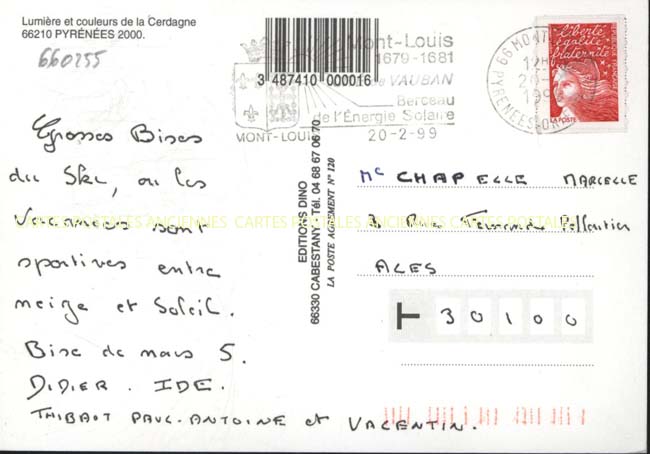 Lumière et couleurs de la Cerdagne
66210 PYRÉNÉES 2000.
660255
3 487410 000016
Mont-Louis
1679-1681
de VAUBAN
Berceau
de l'Énergie Solaire
MONT-LOUIS
20-2-99
66 MONT
PYRENEES-OR
liberté
égalité
fraternité
LA POSTE
Grosses Bises
du Ski, où les
Vacances sont
sportives entre
neige et Soleil.
Bise de nous 5.
DIDIER. IDE.
THIBAUT PAUL-ANTOINE et VALENTIN.
EDITIONS DINO
66330 CABESTANY - Tél. 04 68 67 06 70
LA POSTE AGREMENT N° 120
CARTES POSTALES ANCIENNES CARTES POSTALES ANCIENNES CARTES POSTALE
Me CHAPELLE MARCELLE
3 Rue Fernande Pelloutier
ALES
T 30100